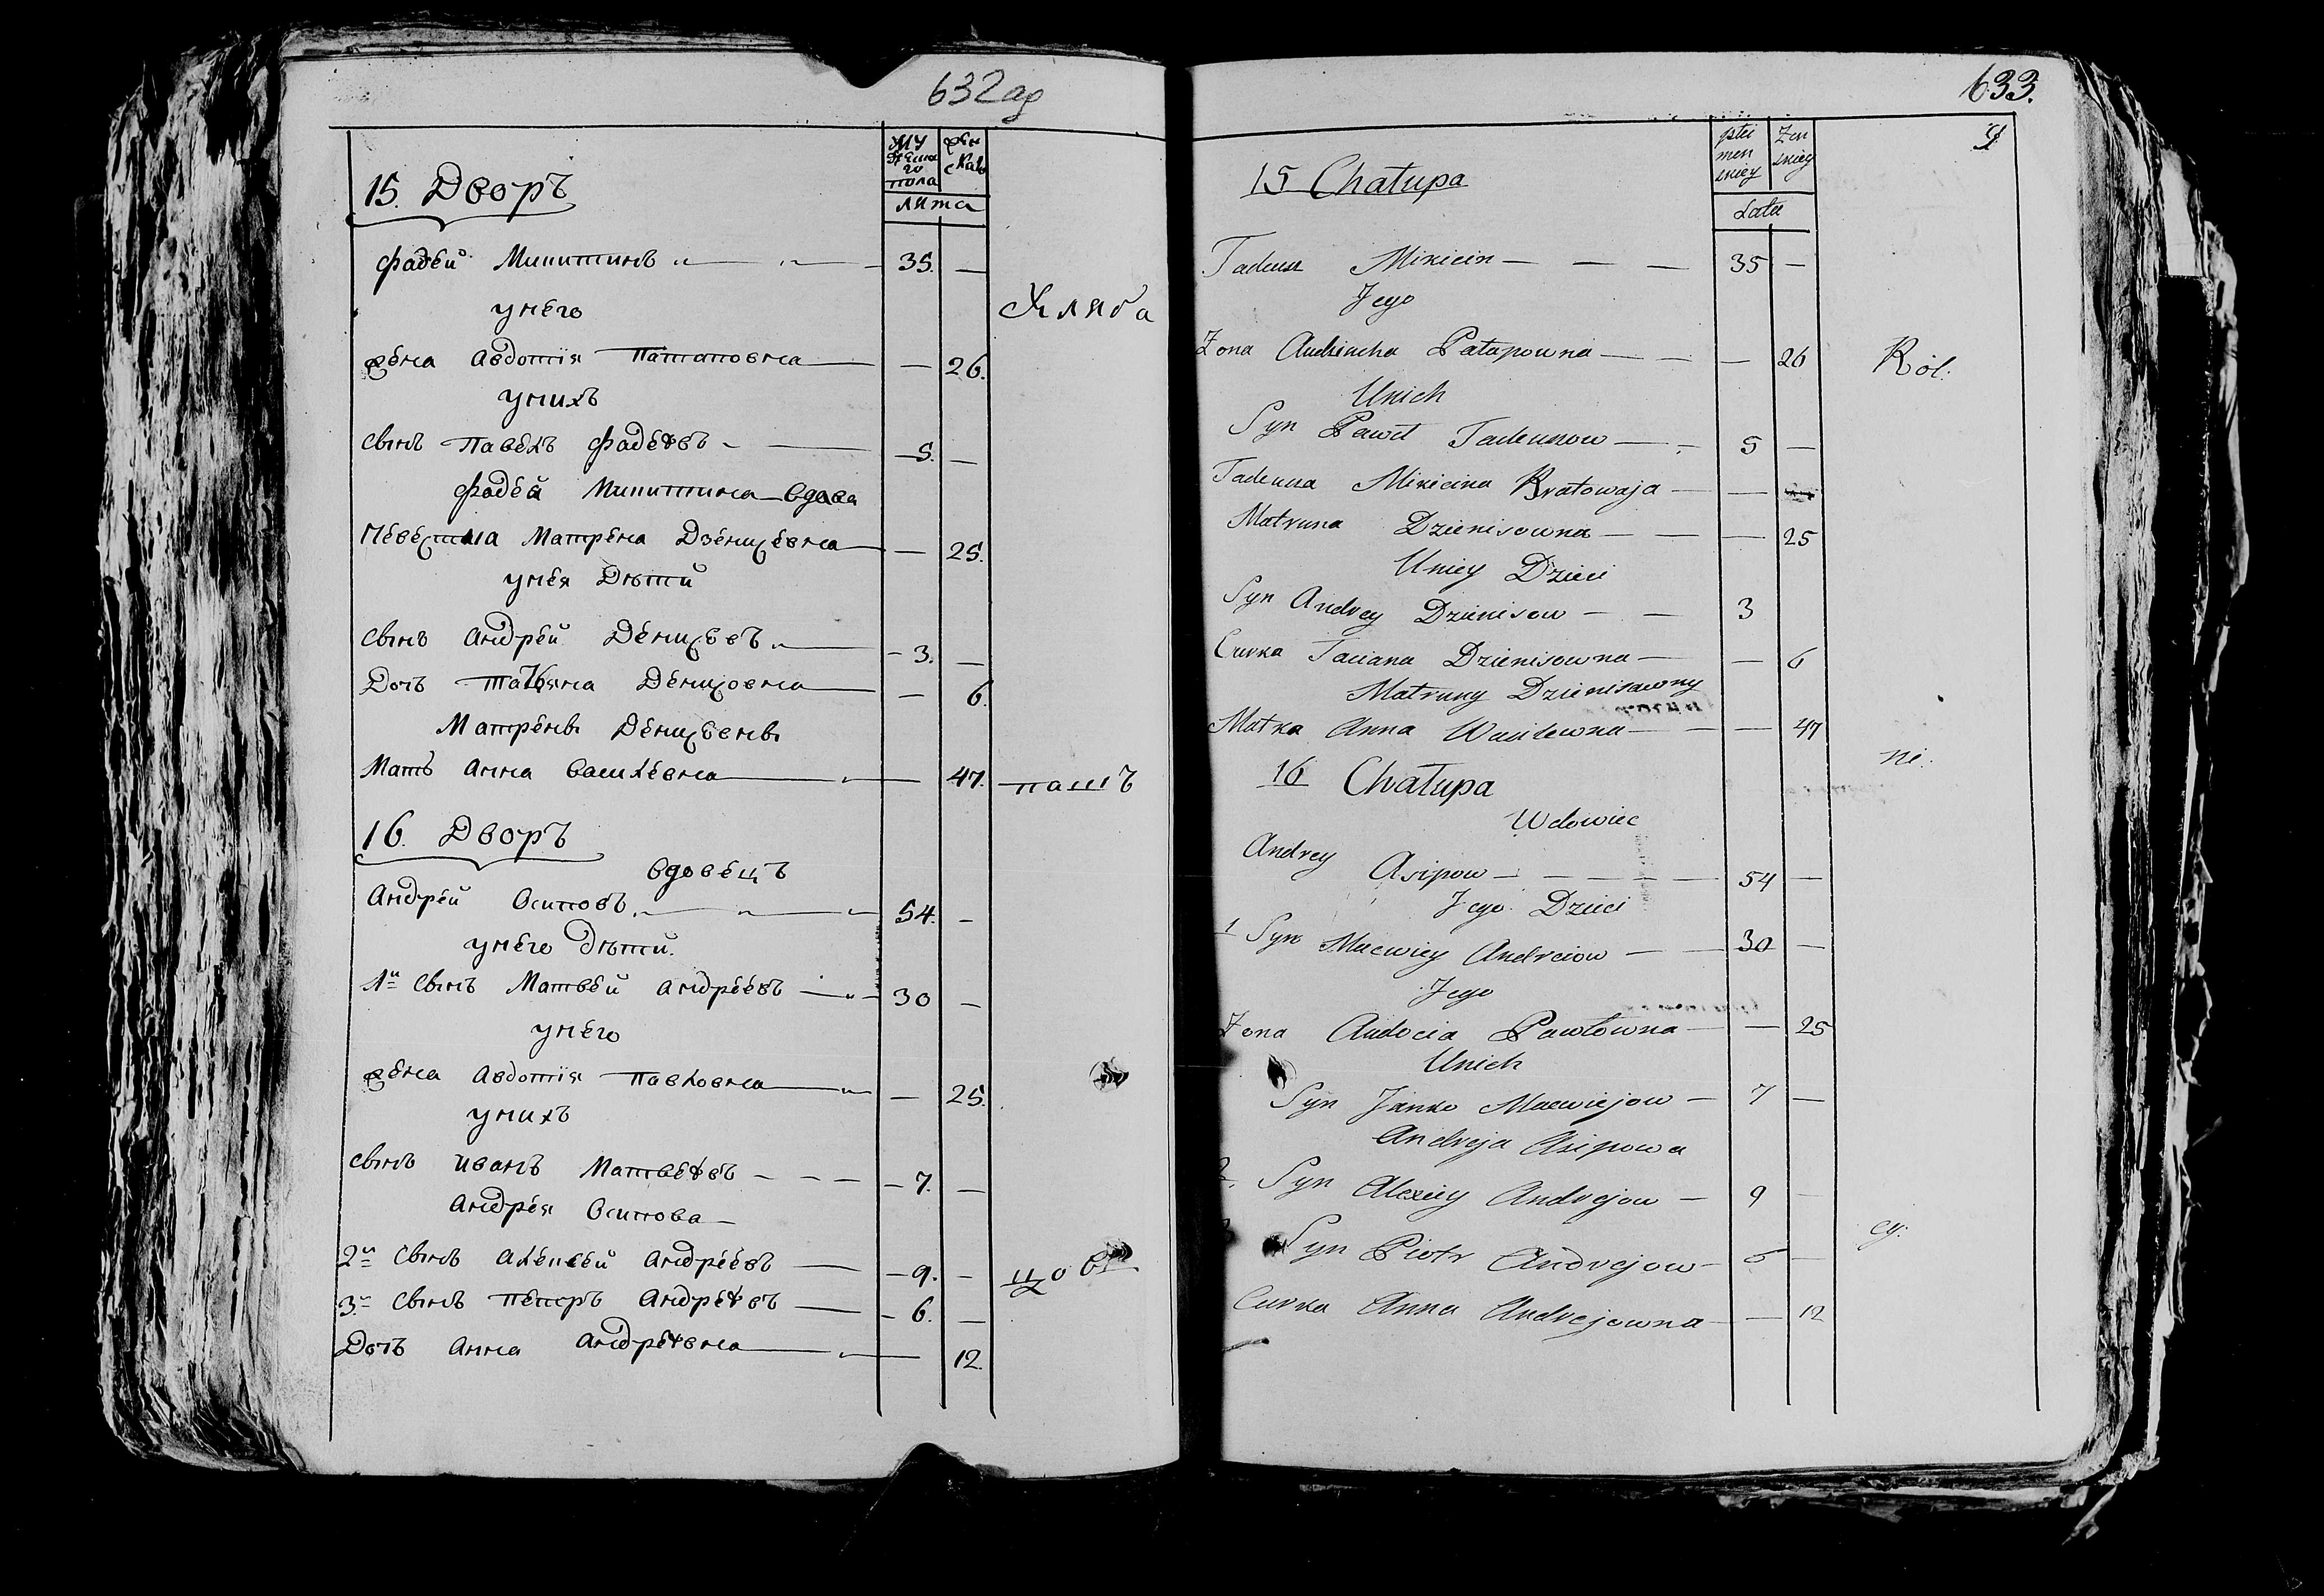 632 ад
му
жеска
го
пола
жен
скаго
лита
15. Дворъ
Фадей Микитинъ 35. —
унего
жена Авдотія Патаповна — 26.
унихъ
сынъ Павелъ Фадеевъ — 5. —
Фадея Микитина вдова
Невестка Матрена Дзенисевна — 25.
унея Дѣти
сынъ Андрей Денисовъ — 3. —
Дочь Татьяна Денисовна — 6.
Матрены Денисовны
Мать Анна Василевна — 47.
хляба
пашъ
16. Дворъ
вдовецъ
Андрей Осиповъ 54. —
унего дѣти.
1й сынъ Матвей Андреевъ 30 —
унего
жена Авдотія Павловна — 25.
унихъ
сынъ Иванъ Матвеевъ — 7. —
Андрея Осипова
2й сынъ Алексей Андреевъ — 9. —
3й сынъ Петръ Андреевъ — 6. —
Дочь Анна Андреевна — 12.
633.
płci
men
skiey
Zen
skiey
Lata
15 Chałupa
Tadeusz Mikicin — — — 35 —
Jego
Zona Audziucha Patapowna — — — 26
Unich
Syn Paweł Tadeuszow — 5 —
Tadeusza Mikicina Bratowaja — —
Matruna Dzienisowna — — — 25
Uniey Dzieci
Syn Andrey Dzienisow — — 3
Curka Taciana Dzienisowna — — 6
Matruny Dzienisowny
Matka Anna Wasilewna — — — 47
Rol:
ni:
16 Chałupa
Wdowiec
Andrey Asipow — — — — 54 —
Jego Dzieci
1 Syn Maciwiey Andreiow — — 30 —
Jego
Zona Audocia Pawłowna — — 25
Unich
Syn Janko Maciwiejow — 7 —
Andreja Asipowa
2. Syn Alexiey Andrejow — 9 —
Syn Piotr Andrejow — 6 —
Curka Anna Andrejowna — — 12
cy: